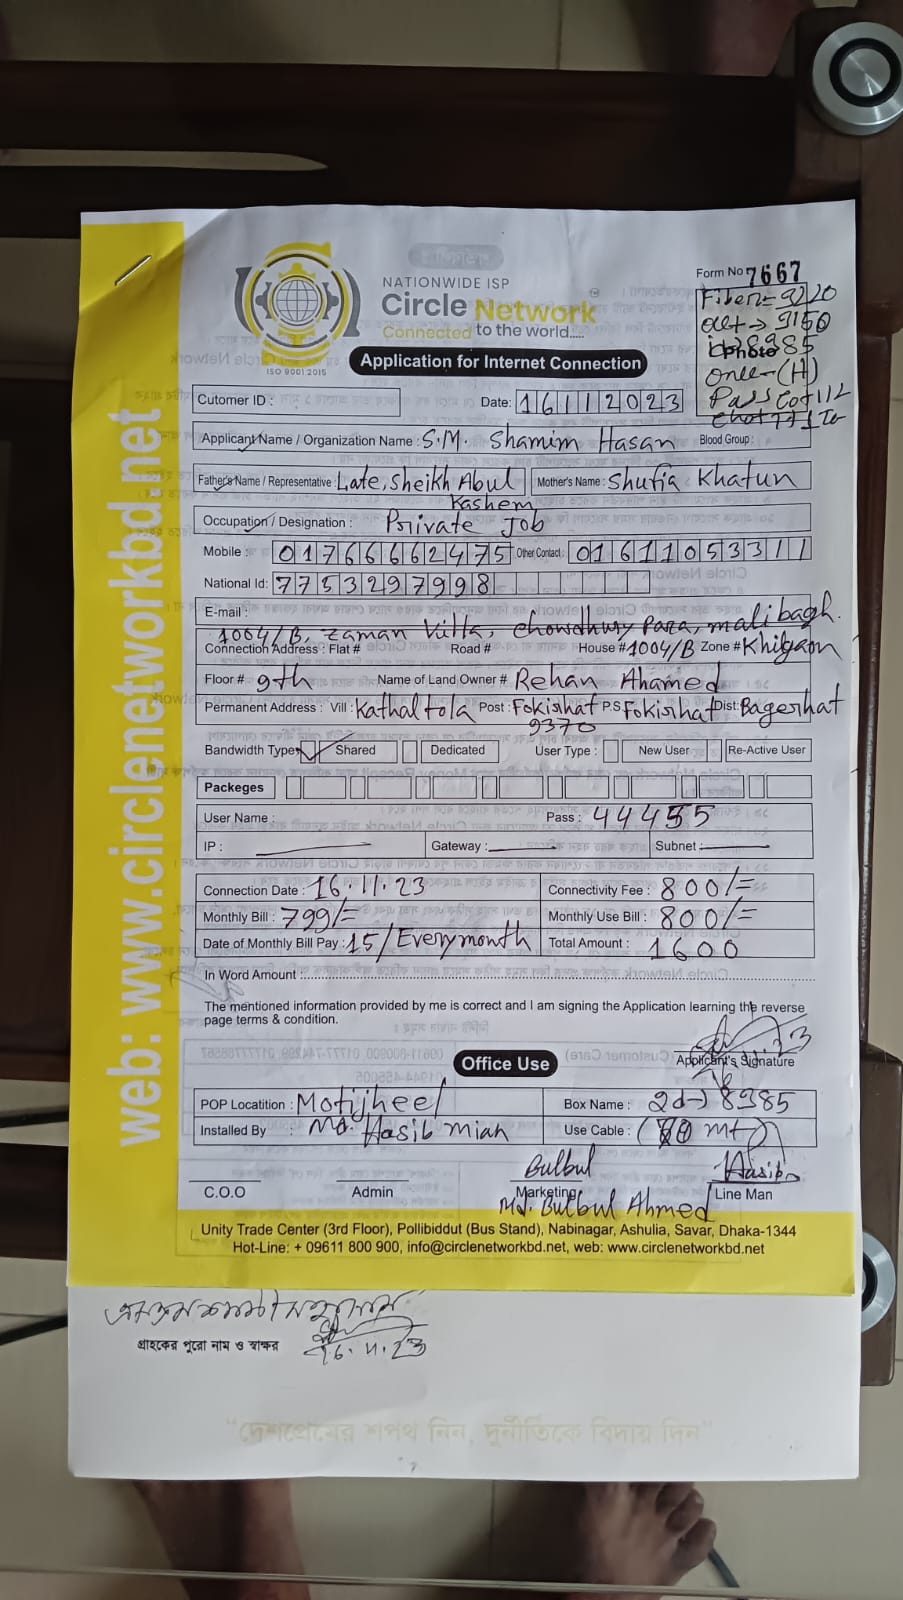 NATIONWIDE ISP
Circle Network
Connected to the world.....
ISO 9001:2015
Form No 7667
Fiber = 9220
out → 3150
8985
onu - (H)
Pass
Application for Internet Connection
web: www.circlenetworkbd.net
Cutomer ID :
Date: 16112023
Applicant Name / Organization Name : S.M. Shamim Hasan Blood Group :
Father's Name / Representative : Late, Sheikh Abul Kashem Mother's Name : Shufia Khatun
Occupation / Designation : Private Job
Mobile : 01766662475 Other Contact : 01611053311
National Id: 7753297998
E-mail :
1004/B, Zaman Villa, Chowdhury Para, malibagh.
Connection Address : Flat # Road # House # 1004/B Zone # Khilgaon
Floor # 9th Name of Land Owner # Rehan Ahamed
Permanent Address : Vill : Kathaltola Post : Fokirhat P.S Fokirhat Dist: Bagerhat
9370
Bandwidth Type Shared Dedicated User Type : New User Re-Active User
Packeges
User Name : Pass : 44455
IP : Gateway : Subnet :
Connection Date : 16.11.23 Connectivity Fee : 800/=
Monthly Bill : 799/= Monthly Use Bill : 800/=
Date of Monthly Bill Pay : 15/Every month Total Amount : 1600
In Word Amount :
The mentioned information provided by me is correct and I am signing the Application learning the reverse
page terms & condition.
Office Use
Applicant's Signature
POP Locatition : Motijheel Box Name : 2d→ 8985
Installed By : Md. Hasib Miah Use Cable : mt
Bulbul Hasib
C.O.O Admin Marketing Line Man
Md. Bulbul Ahmed
Unity Trade Center (3rd Floor), Pollibiddut (Bus Stand), Nabinagar, Ashulia, Savar, Dhaka-1344
Hot-Line: + 09611 800 900, info@circlenetworkbd.net, web: www.circlenetworkbd.net
গ্রাহকের পুরো নাম ও স্বাক্ষর
16.11.23
"দেশপ্রেমের শপথ নিন, দুর্নীতিকে বিদায় দিন"